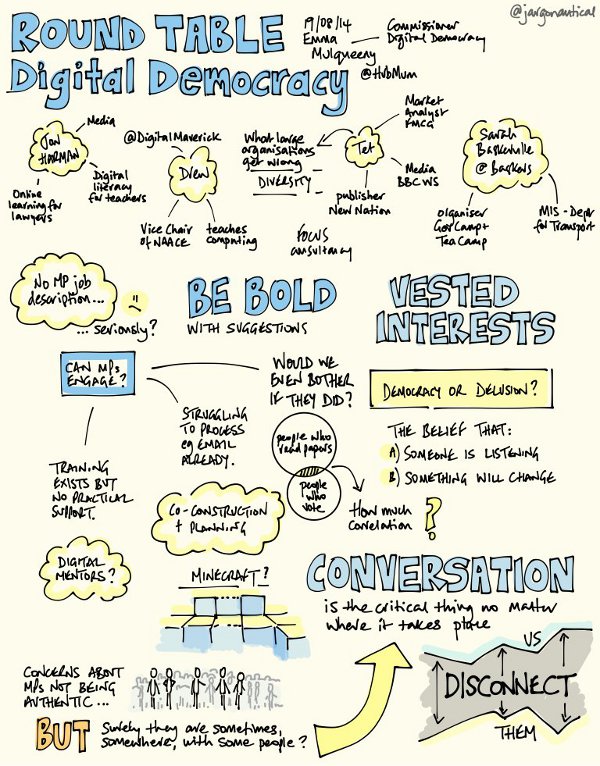 @jargonautical
ROUND TABLE
Digital Democracy
19/08/14
Emma
Mulqueeny
Commissioner
Digital Democracy
@HubMum
Jon
HARMAN
Media
Online
learning for
lawyers
Digital
literacy
for teachers
@DigitalMaverick
Drew
Vice Chair
of NAACE
teaches
computing
What large
organisations
get wrong
DIVERSITY
FOCUS
consultancy
Tet
Market
Analyst
FMCG
Media
BBC WS
publisher
New Nation
Sarah
Baskerville
@Baskers
organiser
GovCamp +
TeaCamp
MIS - Dept
for Transport
No MP job
description...
... seriously?
BE BOLD
WITH SUGGESTIONS
VESTED
INTERESTS
CAN MPs
ENGAGE?
WOULD WE
EVEN BOTHER
IF THEY DID?
STRUGGLING
TO PROCESS
eg EMAIL
ALREADY.
TRAINING
EXISTS BUT
NO PRACTICAL
SUPPORT.
DIGITAL
MENTORS?
people who
read papers
people
who
vote
How much
correlation
?
DEMOCRACY OR DELUSION?
THE BELIEF THAT:
A) SOMEONE IS LISTENING
B) SOMETHING WILL CHANGE
CO-CONSTRUCTION
+ PLANNING
MINECRAFT?
CONVERSATION
is the critical thing no matter
where it takes place
US
DISCONNECT
THEM
CONCERNS ABOUT
MPs NOT BEING
AUTHENTIC...
BUT
Surely they are sometimes,
somewhere, with some people?